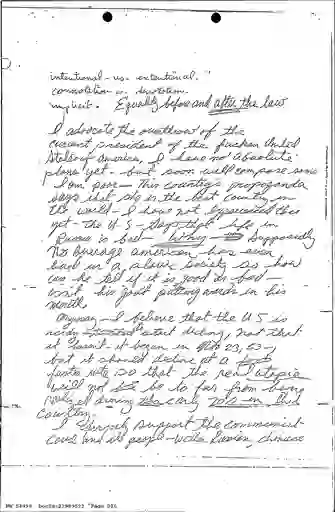 intentional - vs. extentional."
connotation vs. denotation.
implicit. Equality before and after the law
I advocate the overthrow of the
current president of the fucken United
States of america. I have no absolute
plans yet - but soon will compose some
I am poor - This country's propaganda
says that she is the best country in
the world - I have not experienced this
yet - the U S - says that life in
Russia is bad. Why - supposedly
no average american has ever
lived in a slavic society so how
can he tell if it is good or bad -
isn't his gov't putting words in his
mouth.
Anyway - I believe that the U S is
ready to start dieing, not that
it hasn't it began in Nov 23, 63 -
but it should decline at a
faster rate so that the real utopia
will not be to far from being
realized during the early 70's in this
country.
I strongly support the communist
cause and its people - wether Russian, chinese
NW 54494 DocId:21989593 Page 101